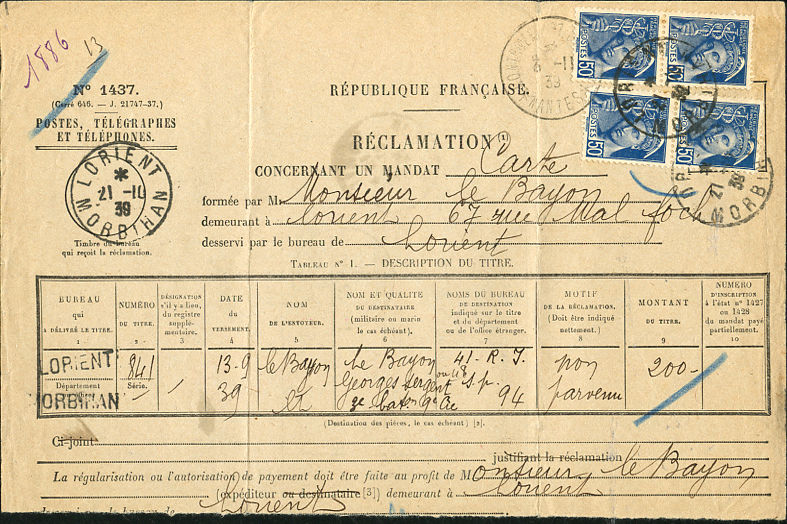 1886 13
N° 1437.
(Carré 646. — J. 21747-37.)
POSTES, TÉLÉGRAPHES
ET TÉLÉPHONES.
RÉPUBLIQUE FRANÇAISE.
POSTES 50
POSTES 50
POSTES 50
21 -11
39
NANTES
LORIENT
*
21 -11
39
MORBIHAN
Timbre du bureau
qui reçoit la réclamation.
RÉCLAMATION (1)
CONCERNANT UN MANDAT Carte
formée par M. Monsieur le Bayon
demeurant à Lorient 67 rue Mal foch
desservi par le bureau de Lorient
21
39
MORBIHAN
TABLEAU N° 1. — DESCRIPTION DU TITRE.
BUREAU
qui
A DÉLIVRÉ LE TITRE.
1
NUMÉRO
DU TITRE.
2
DÉSIGNATION
s'il y a lieu,
du registre
supplé-
mentaire.
3
DATE
du
VERSEMENT.
4
NOM
DE L'ENVOYEUR.
5
NOM ET QUALITÉ
DU DESTINATAIRE
(militaire ou marin
le cas échéant).
6
NOMS DU BUREAU
DE DESTINATION
indiqué sur le titre
et du département
ou de l'office étranger.
7
MOTIF
DE LA RÉCLAMATION.
(Doit être indiqué
nettement.)
8
MONTANT
DU TITRE.
9
NUMÉRO
D'INSCRIPTION
à l'état n° 1427
ou 1428
du mandat payé
partiellement.
10
LORIENT
Département
MORBIHAN
841
Série.
13-9
39
le Bayon
Le Bayon
Georges sergent
41. R. I.
S.p.
94
non
parvenu
200-
(Destination des pièces, le cas échéant) [2].
Ci-joint
justifiant la réclamation
La régularisation ou l'autorisation de payement doit être faite au profit de Monsieur le Bayon
(expéditeur ou destinataire [3]) demeurant à Lorient
Lorient